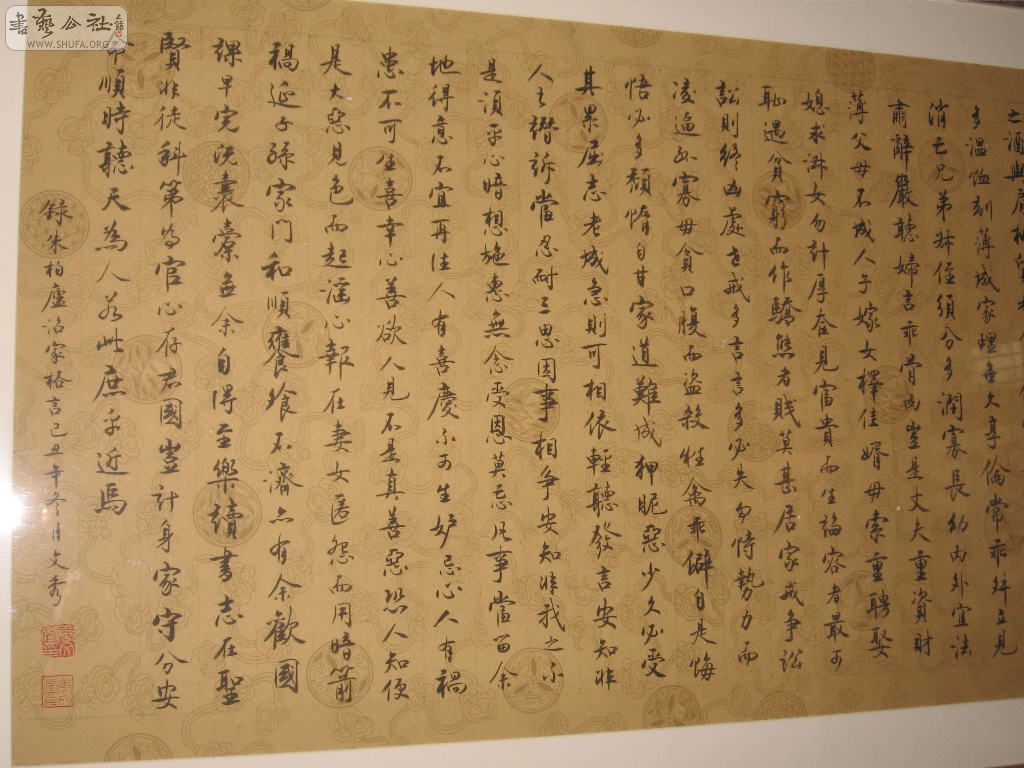 之酒與肩
多温恤刻薄成家理無久享倫常乖舛立見
消亡兄弟叔侄須分多潤寡長幼内外宜法
肅辭嚴聽婦言乖骨肉豈是丈夫重資財
薄父母不成人子嫁女擇佳婿毋索重聘娶
媳求淑女勿計厚奩見富貴而生諂容者最可
耻遇貧窮而作驕態者賤莫甚居家戒争訟
訟則終凶處世戒多言言多必失勿恃勢力而
凌逼孤寡毋貪口腹而恣殺牲禽乖僻自是悔
悟必多頹惰自甘家道難成狎昵惡少久必受
其累屈志老成急則可相依輕聽發言安知非
人之譖訴當忍耐三思因事相争安知非我之不
是須平心暗想施惠無念受恩莫忘凡事當留余
地得意不宜再往人有喜慶不可生妒忌心人有禍
患不可生喜幸心善欲人見不是真善惡恐人知便
是大惡見色而起淫心報在妻女匿怨而用暗箭
禍延子孫家門和順饔飧不濟亦有余歡國
課早完囊橐無余自得至樂讀書志在聖
賢非徒科第為官心存君國豈計身家守分安
命順時聽天為人若此庶乎近焉
録朱柏廬治家格言己丑年冬月文秀
書藝公社
WWW.SHUFA.ORG